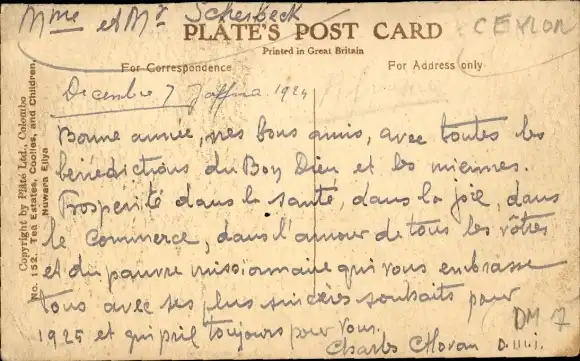 Mme et Mr Scherbeck
CEYLON
PLÂTÉ'S POST CARD
Printed in Great Britain
For Correspondence
For Address only
Decembre 7 Jaffna 1924
Bonne année, mes bons amis, avec toutes les
bénédictions du Bon Dieu et les miennes.
Prosperité dans la santé, dans la joie, dans
le Commerce, dans l'amour de tous les vôtres
et du pauvre missionnaire qui vous embrasse
tous avec ses plus sincères souhaits pour
1925 et qui prie toujours pour vous.
Charles
DM 7
Copyright by Plâté Ltd., Colombo
No. 152. Tea Estates, Coolies, and Children,
Nuwara Eliya